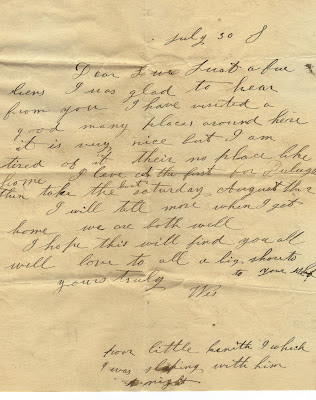 July 30 8
Dear Just a few
liens I was glad to hear
from you I have visited a
good many places around here
it is very nice but I am
tired of it their no place like
home I leave the first for
then take the boat saturday August the 2
I will tell more when I get
home we are both well
I hope this will find you all
well love to all a big share
to your self
yours truly
poor little I which
I was sleping with him
to night